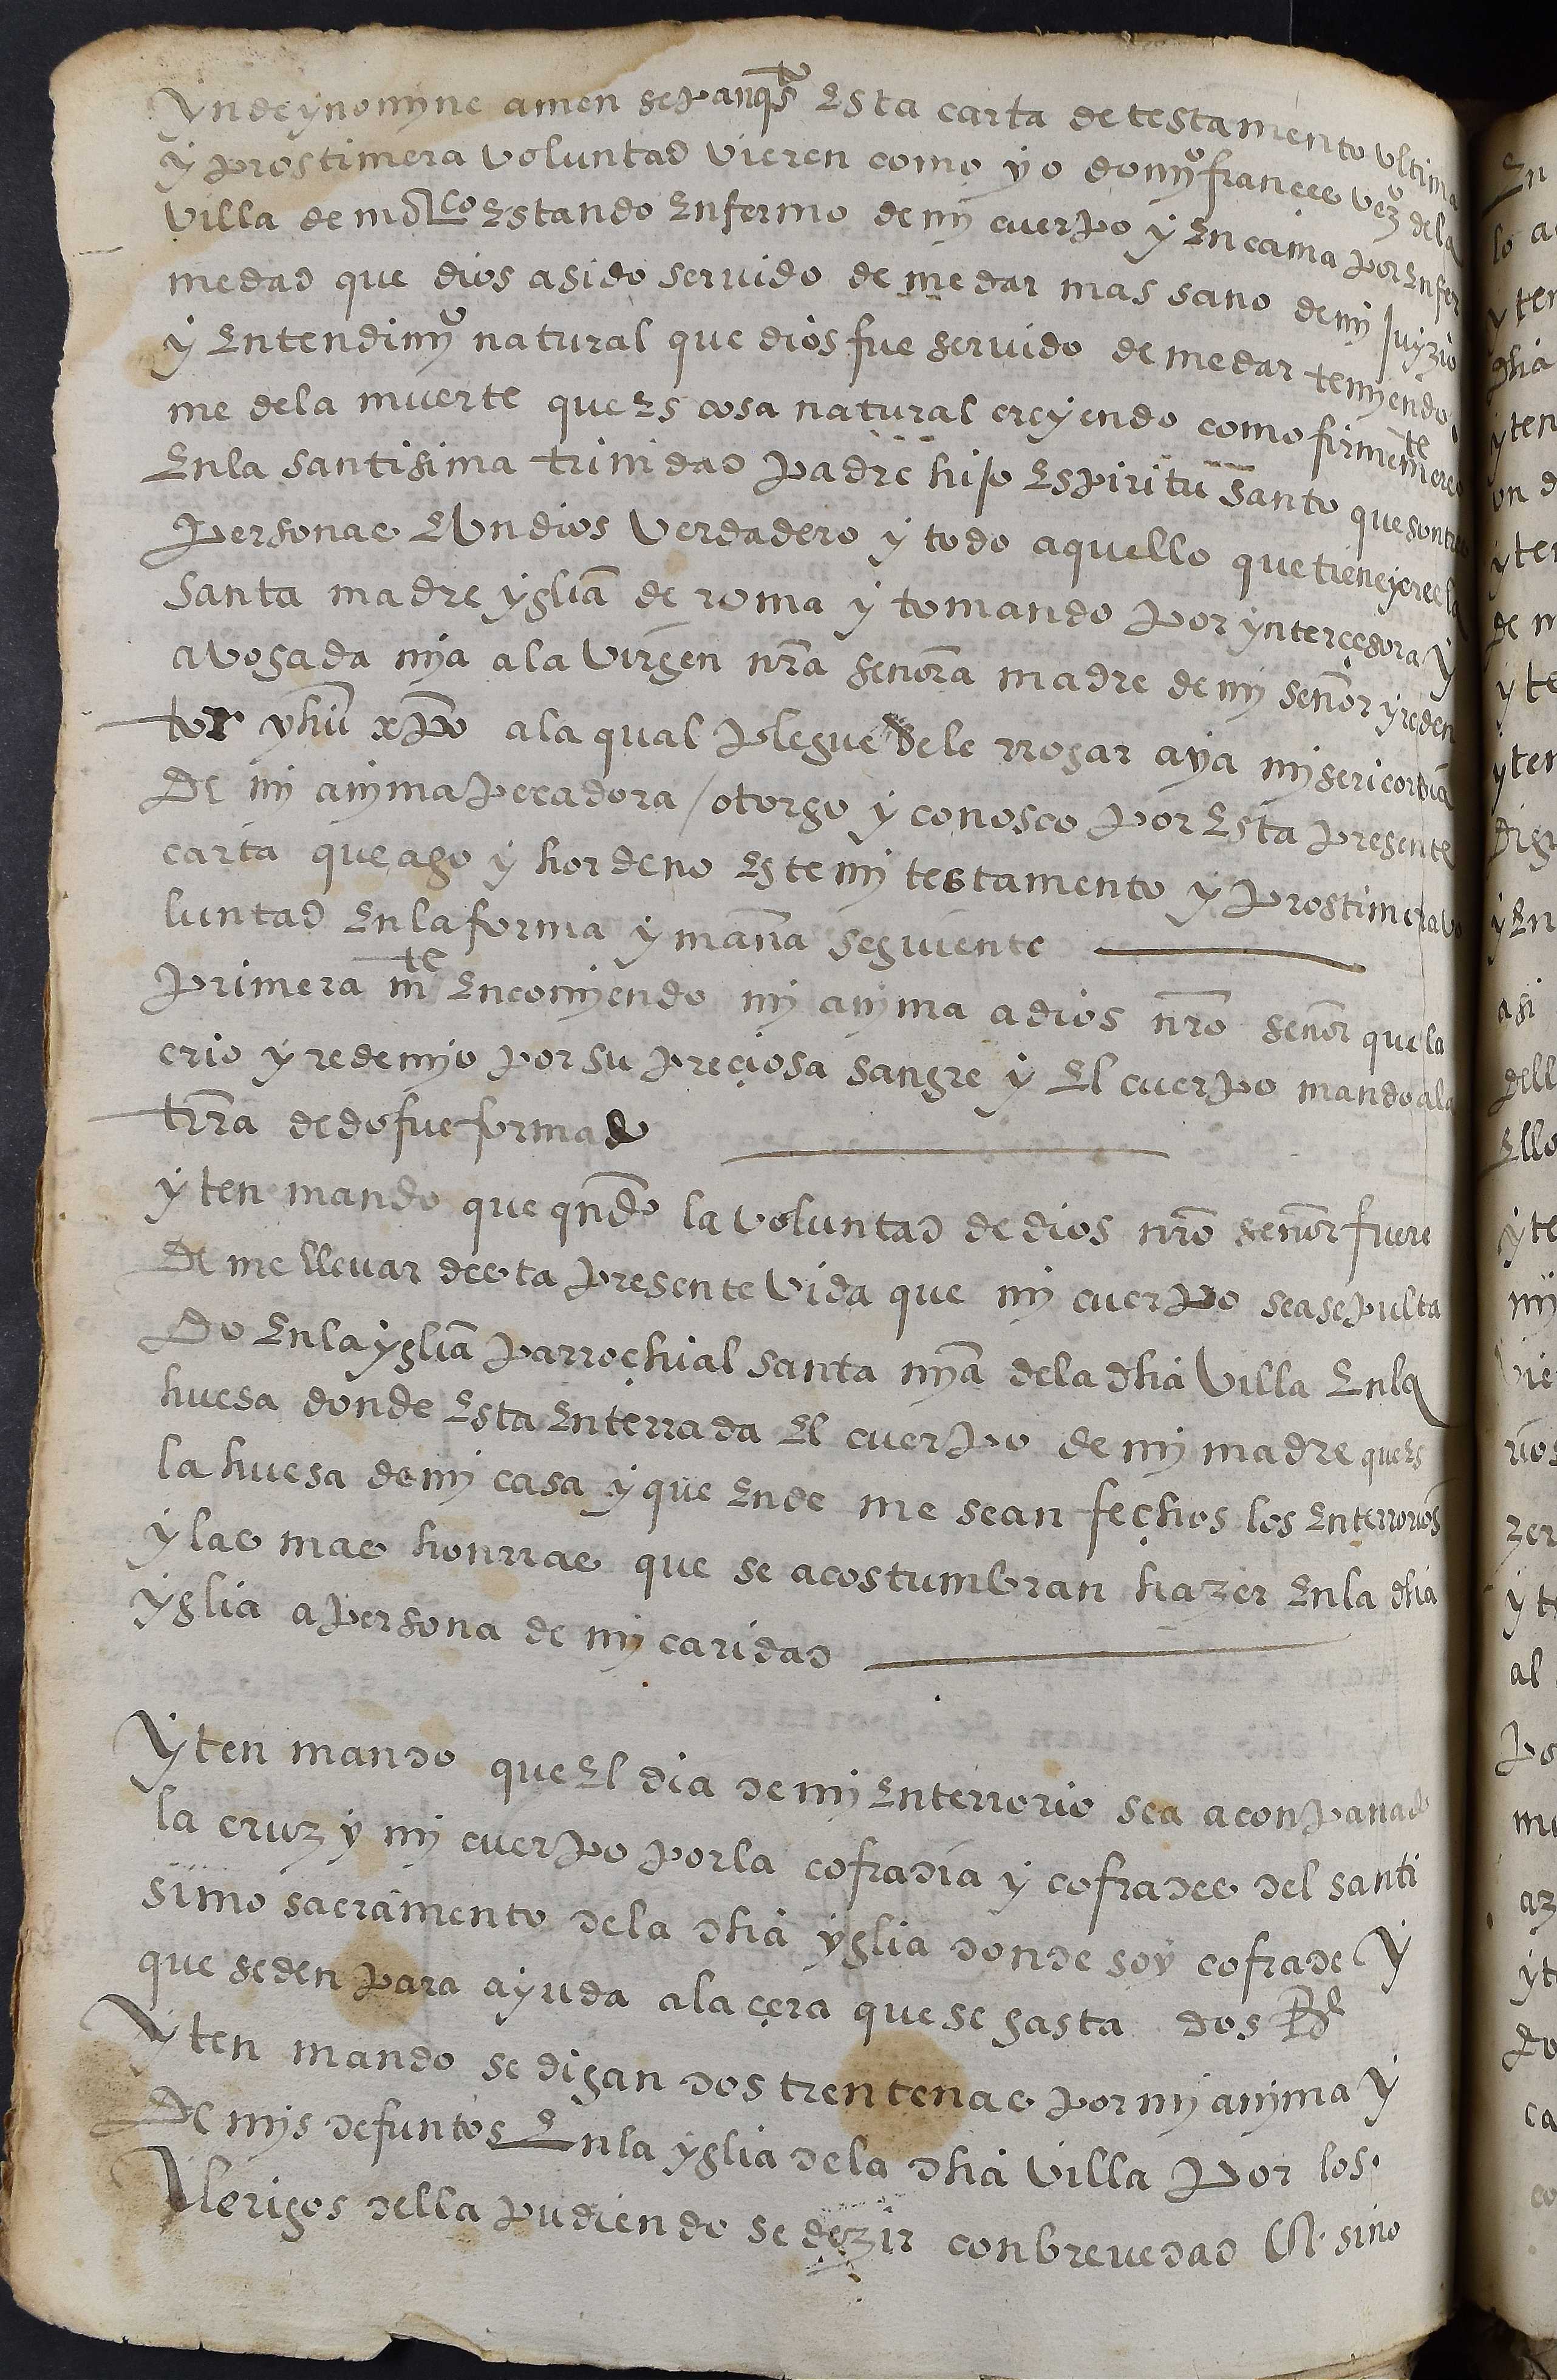 yndeynomyne amen sepanqs esta carta de testamento vltima
y prostimera voluntad vieren como yo domyo frances vezo dela
villa de estando enfermo de mi cuerpo y en cama por enfer
medad que dios asido servido de me dar mas sano de mi juyzio
y entendimyo natural que dios fue servido de me dar temyendo
me dela muerte ques cosa natural creyendo como firmemte creo
enla santisima trinidad padre hijo espiritu santo que son tres
personas e vn dios verdadero y todo aquello que tiene y cree la
santa madre yglia de roma y tomando por yntercesora y
avogada mya ala virgen nra senora madre de mi senor y reden
tor yhu xpo ala qual plegue de le rrogar aya mysericordia
de mi anyma pecadora / otorgo y conosco por esta presente
carta que ago y hordeno este mi testamento y prostimera vo
luntad enla forma y mana seguiente
primera mte encomyendo mi anyma a dios nro senor que la
crio y redemyo por su preçiosa sangre y el cuerpo mando ala
trra de do fue formado
yten mando que qndo la voluntad de dios nro senor fuere
de me llevar desta presente vida que mi cuerpo sea sepulta
do enla yglia parrochial santa mya dela dha villa enla
huesa donde esta enterrada el cuerpo de mi madre ques
la huesa de mi casa y que ende me sean fechos los enterrorios
y las mas honrras que se acostumbran hazer enla dha
yglia a persona de mi caridad
yten mando que el dia de mi enterrorio sea aconpanado
la cruz y mi cuerpo por la cofradia y cofrades del santi
simo sacramento dela dha yglia donde soy cofrade y
que se den para ayuda ala çera que se gasta dos Rs
yten mando se digan dos trentenas por mi anyma y
de mys defuntos enla yglia dela dha villa por los
clerigos della pudiendo se dezir con brevedad sino